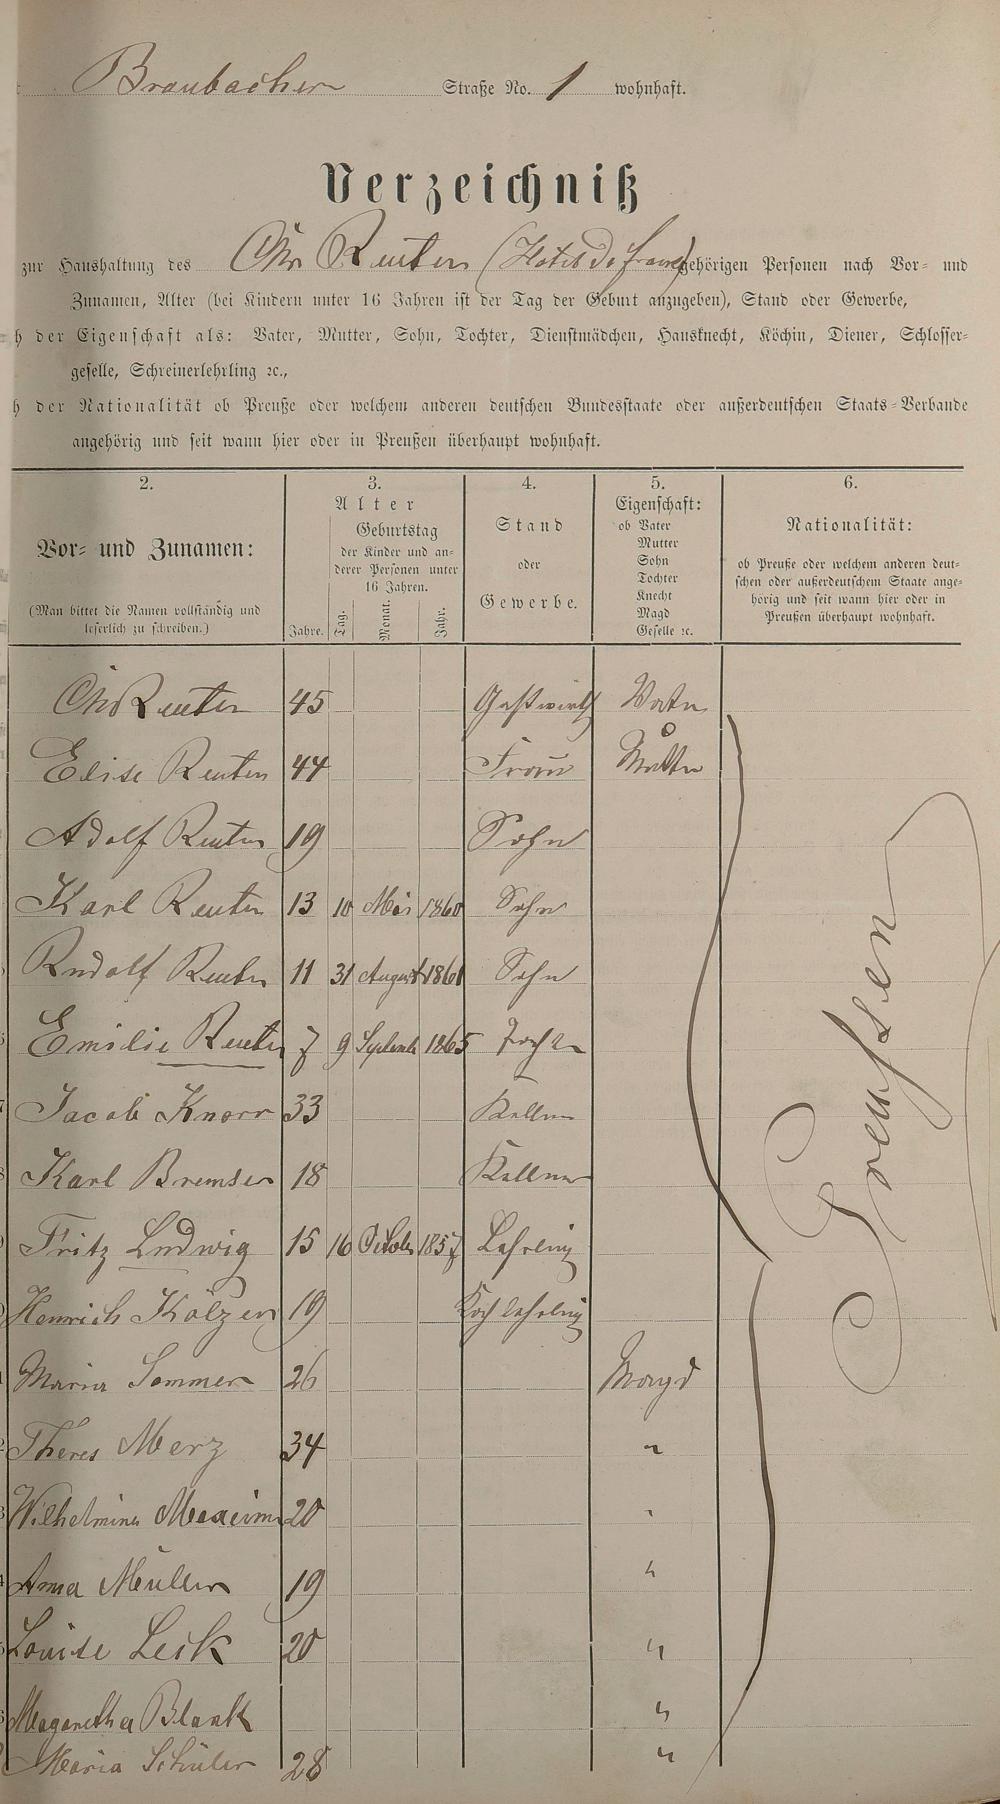 Braubacher Straße No. 1 wohnhaft.
Verzeichniß
zur Haushaltung des Chr Reuter (Hotel de france) gehörigen Personen nach Vor- und
Zunamen, Alter (bei Kindern unter 16 Jahren ist der Tag der Geburt anzugeben), Stand oder Gewerbe,
h der Eigenschaft als: Vater, Mutter, Sohn, Tochter, Dienstmädchen, Hausknecht, Köchin, Diener, Schlosser-
geselle, Schreinerlehrling ꝛc.,
h der Nationalität ob Preuße oder welchem anderen deutschen Bundesstaate oder außerdeutschen Staats-Verbande
angehörig und seit wann hier oder in Preußen überhaupt wohnhaft.
2. 3. 4. 5. 6.
Vor- und Zunamen:
(Man bittet die Namen vollständig und
leserlich zu schreiben.)
Alter
Geburtstag
der Kinder und an-
derer Personen unter
16 Jahren.
Jahre. Tag. Monat. Jahr.
Stand
oder
Gewerbe.
Eigenschaft:
ob Vater
Mutter
Sohn
Tochter
Knecht
Magd
Geselle ꝛc.
Nationalität:
ob Preuße oder welchem anderen deut-
schen oder außerdeutschem Staate ange-
hörig und seit wann hier oder in
Preußen überhaupt wohnhaft.
Chr Reuter 45 Gastwirth Vater
Elise Reuter 44 Frau Mutter
Adolf Reuter 19 Sohn
Karl Reuter 13 10 Mai 1860 Sohn
Rudolf Reuter 11 31 August 1861 Sohn
Emilie Reuter 7 9 September 1865 Tochter
Jacob Knorr 33 Kellner
Karl Bremser 18 Kellner
Fritz Ludwig 15 16 October 1857 Lehrling
Henrich Kölzer 19 Koch lehrling
Maria Sommer 26 Magd
Theres Merz 34 "
Wilhelmine 20 "
Anna Müller 19 "
Louise Leik 20 "
Magaretha Blank "
Maria Schüler 28 "
Preussen